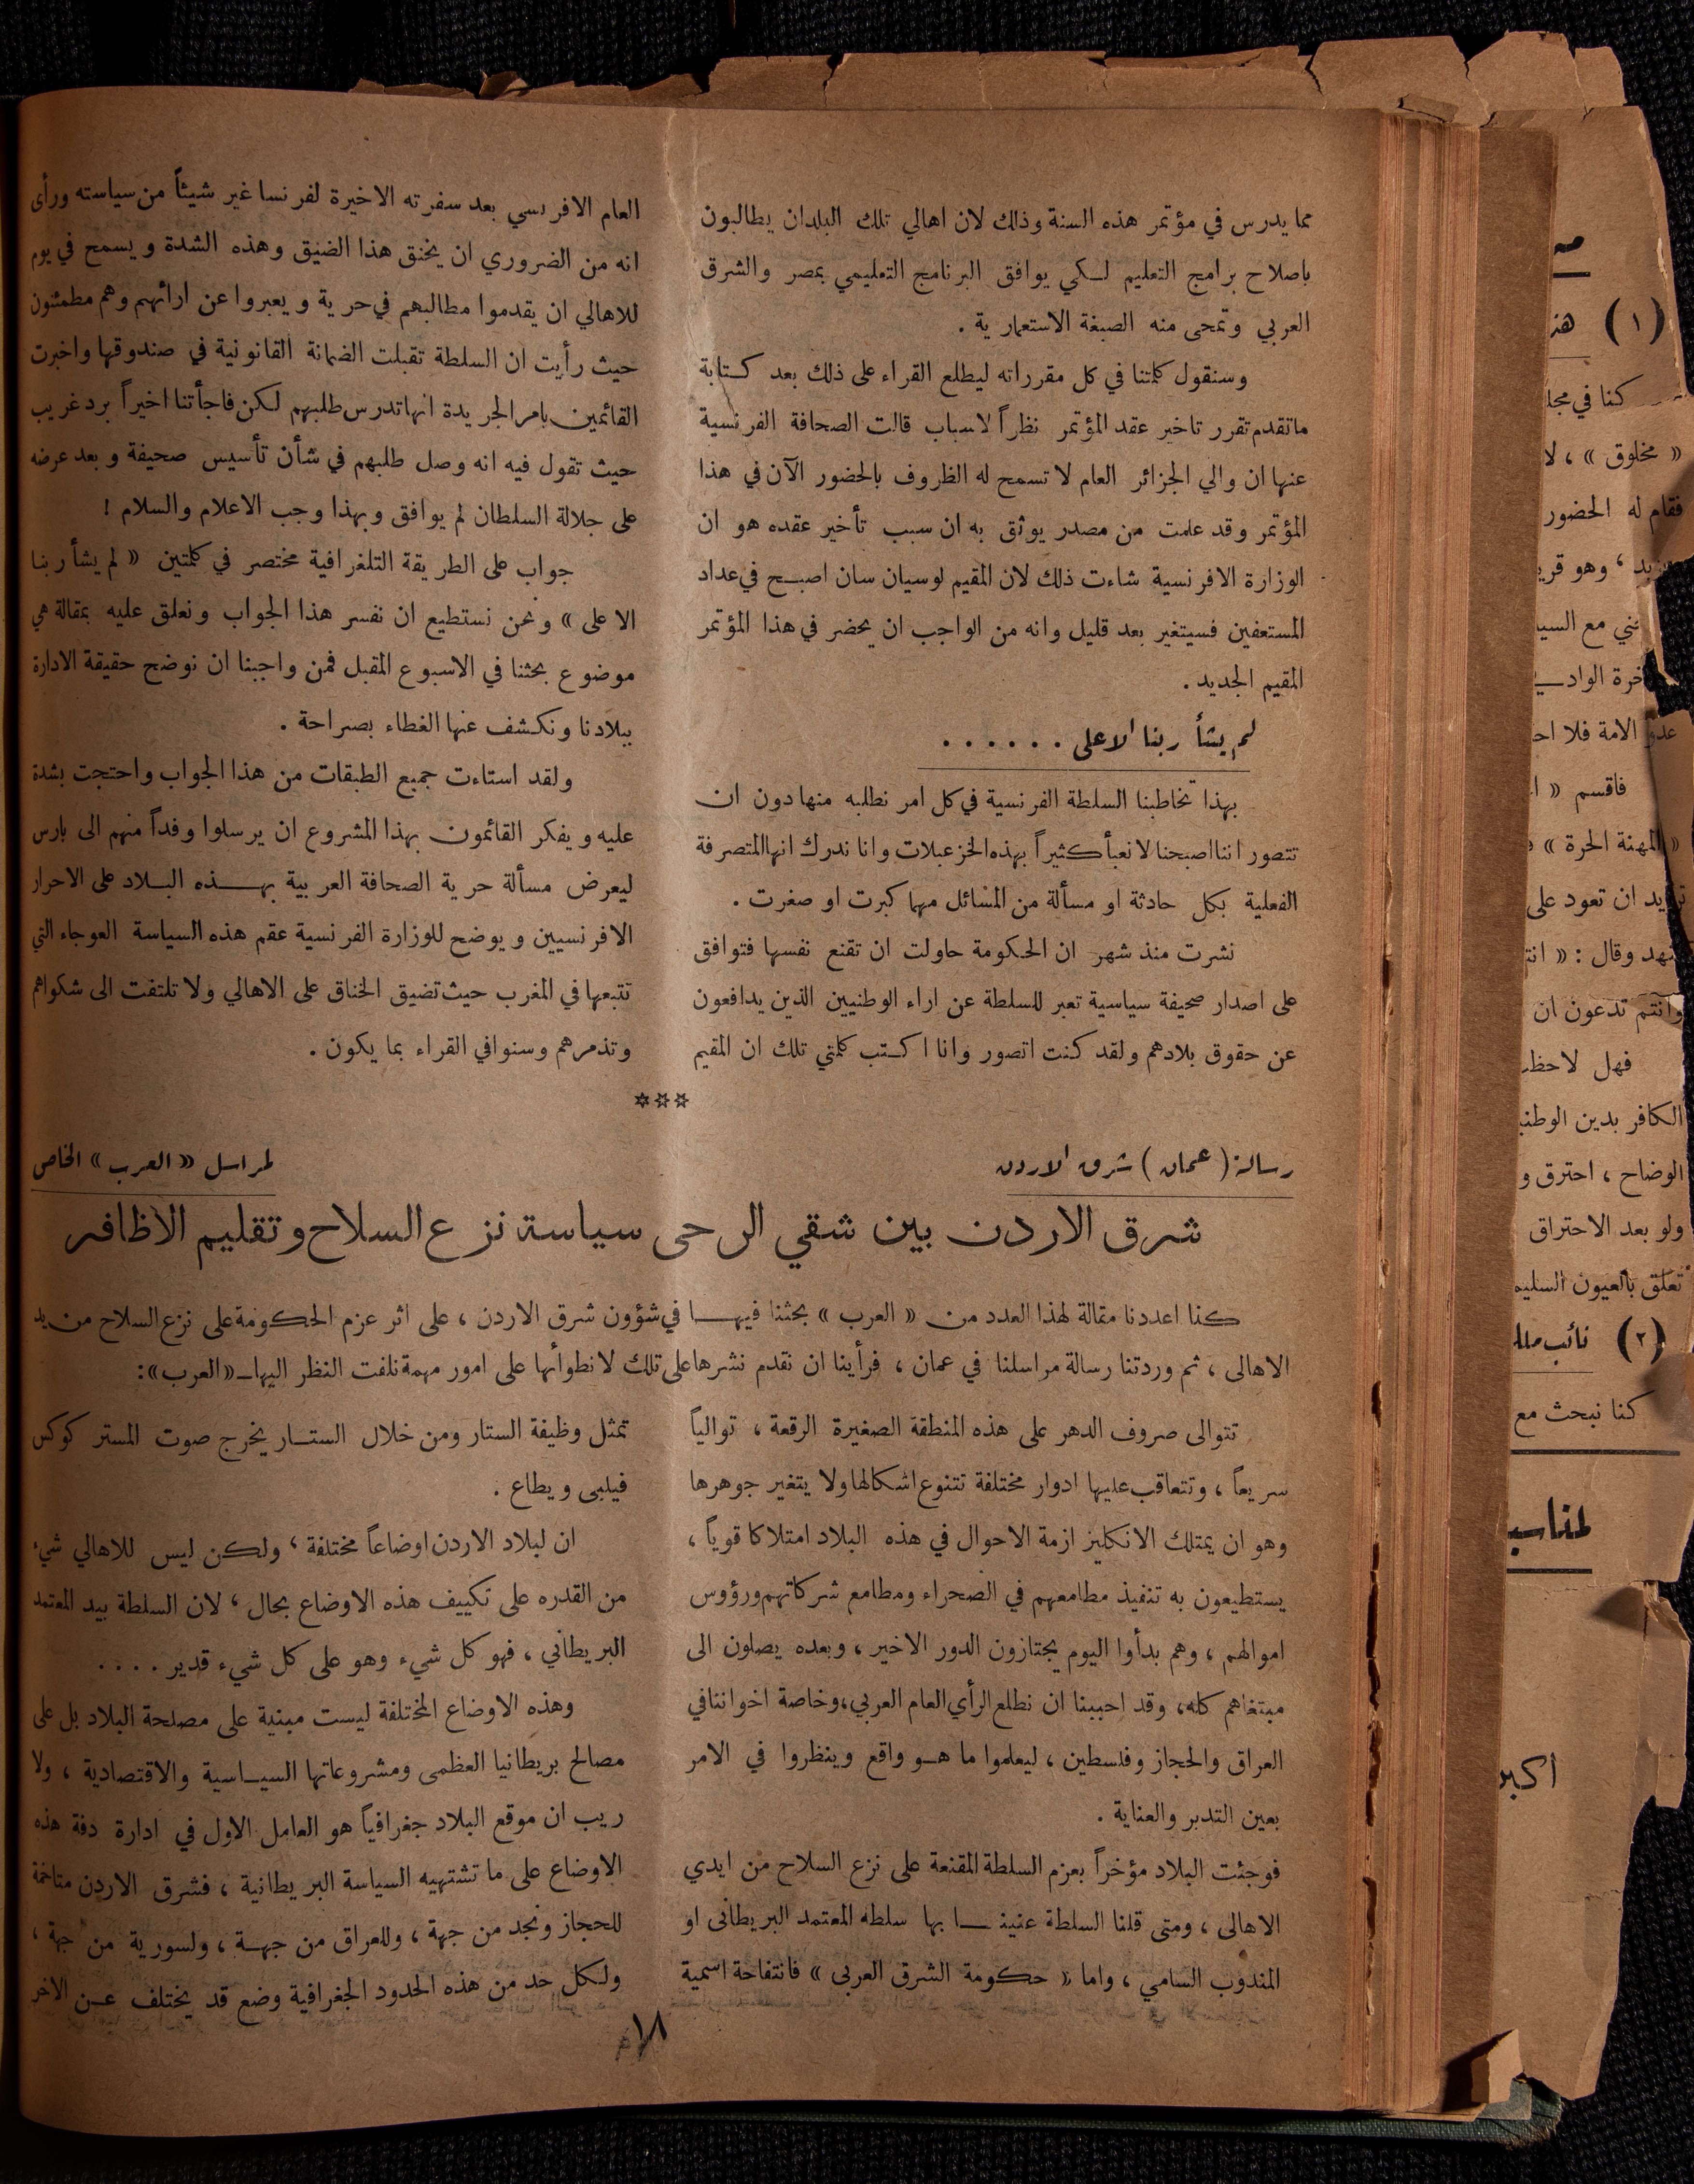 مما يدرس في مؤتمر هذه السنة وذلك لان اهالي تلك البلدان يطالبون
باصلاح برامج التعليم لكي يوافق البرنامج التعليمي بمصر والشرق
العربي وتمحى منه الصبغة الاستعمارية .
وسنقول كلمتنا في كل مقرراته ليطلع القراء على ذلك بعد كتابة
ماتقدم تقرر تاخير عقد المؤتمر نظراً لاسباب قالت الصحافة الفرنسية
عنها ان والي الجزائر العام لا تسمح له الظروف بالحضور الآن في هذا
المؤتمر وقد علمت من مصدر يوثق به ان سبب تأخير عقده هو ان
الوزارة الافرنسية شاءت ذلك لان المقيم لوسيان سان اصبح في عداد
المستعفين فسيتغير بعد قليل وانه من الواجب ان يحضر في هذا المؤتمر
المقيم الجديد .
لم يشأ ربنا الاعلى . . . . . .
بهذا تخاطبنا السلطة الفرنسية في كل امر نطلبه منها دون ان
تتصور اننا اصبحنا لا نعبأ كثيراً بهذه الخزعبلات وانا ندرك انها المتصرفة
الفعلية بكل حادثة او مسألة من المسائل مهما كبرت او صغرت .
نشرت منذ شهر ان الحكومة حاولت ان تقنع نفسها فتوافق
على اصدار صحيفة سياسية تعبر للسلطة عن اراء الوطنيين الذين يدافعون
عن حقوق بلادهم ولقد كنت اتصور وانا اكتب كلمتي تلك ان المقيم
العام الافرنسي بعد سفرته الاخيرة لفرنسا غير شيئاً من سياسته ورأى
انه من الضروري ان يخنق هذا الضيق وهذه الشدة ويسمح في يوم
للاهالي ان يقدموا مطالبهم في حرية ويعبروا عن ارائهم وهم مطمئنون
حيث رأيت ان السلطة تقبلت الضمانة القانونية في صندوقها واخبرت
القائمين بامر الجريدة انها تدرس طلبهم لكن فاجأتنا اخيراً برد غريب
حيث تقول فيه انه وصل طلبهم في شأن تأسيس صحيفة وبعد عرضه
على جلالة السلطان لم يوافق وبهذا وجب الاعلام والسلام !
جواب على الطريقة التلغرافية مختصر في كلمتين « لم يشأ ربنا
الاعلى » ونحن نستطيع ان نفسر هذا الجواب ونعلق عليه بمقالة هي
موضوع بحثنا في الاسبوع المقبل فمن واجبنا ان نوضح حقيقة الادارة
ببلادنا ونكشف عنها الغطاء بصراحة .
ولقد استاءت جميع الطبقات من هذا الجواب واحتجت بشدة
عليه ويفكر القائمون بهذا المشروع ان يرسلوا وفداً منهم الى بارس
ليعرض مسألة حرية الصحافة العربية بهذه البلاد على الاحرار
الافرنسيين ويوضح للوزارة الفرنسية عقم هذه السياسة العوجاء التي
تتبعها في المغرب حيث تضيق الخناق على الاهالي ولا تلتفت الى شكواهم
وتذمرهم وسنوافي القراء بما يكون .
***
رسالة ( عمان ) شرق الاردن
لمراسل « العرب » الخاص
شرق الاردن بين شقي الرحى سياسة نزع السلاح وتقليم الاظافر
كنا اعددنا مقالة لهذا العدد من « العرب » بحثنا فيها في شؤون شرق الاردن ، على اثر عزم الحكومة على نزع السلاح من يد
الاهالى ، ثم وردتنا رسالة مراسلنا في عمان ، فرأينا ان نقدم نشرها على تلك لانطوأها على امور مهمة نلفت النظر اليها ـ «العرب» :
تتوالى صروف الدهر على هذه المنطقة الصغيرة الرقعة ، توالياً
سريعاً ، وتتعاقب عليها ادوار مختلفة تتنوع اشكالها ولا يتغير جوهرها
وهو ان يمتلك الانكليز ازمة الاحوال في هذه البلاد امتلاكا قوياً ،
يستطيعون به تنفيذ مطامعهم في الصحراء ومطامع شركاتهم ورؤوس
اموالهم ، وهم بدأوا اليوم يجتازون الدور الاخير ، وبعده يصلون الى
مبتغاهم كله، وقد احببنا ان نطلع الرأي العام العربي، وخاصة اخواننا في
العراق والحجاز وفلسطين ، ليعلموا ما هو واقع وينظروا في الامر
بعين التدبر والعناية .
فوجئت البلاد مؤخراً بعزم السلطة المقنعة على نزع السلاح من ايدي
الاهالى ، ومتى قلنا السلطة عنينا بها سلطه المعتمد البريطانى او
المندوب السامي ، واما « حكومة الشرق العربى » فانتفاحة اسمية
تمثل وظيفة الستار ومن خلال الستار يخرج صوت المستر كوكس
فيلبى ويطاع .
ان لبلاد الاردن اوضاعاً مختلفة ، ولكن ليس للاهالي شيء
من القدره على تكييف هذه الاوضاع بحال ، لان السلطة بيد المعتمد
البريطاني ، فهو كل شيء وهو على كل شيء قدير . . . .
وهذه الاوضاع المختلفة ليست مبنية على مصلحة البلاد بل على
مصالح بريطانيا العظمى ومشروعاتها السياسية والاقتصادية ، ولا
ريب ان موقع البلاد جغرافياً هو العامل الاول في ادارة دفة هذه
الاوضاع على ما تشتهيه السياسة البريطانية ، فشرق الاردن متاخمة
للحجاز ونجد من جهة ، وللعراق من جهة ، ولسورية من جهة ،
ولكل حد من هذه الحدود الجغرافية وضع قد يختلف عن الاخر
١٨
( ١ ) هذ
كنا في مجل
« مخلوق » ، لا
فقام له الحضور
، وهو قري
مع السيد
عدو الامة فلا
فاقسم «
« المهنة الحرة »
تريد ان تعود على
وقال : « انت
وانتم تدعون ان
فهل لاحظ
الكافر بدين الوطني
الوضاح ، احترق و
ولو بعد الاحتراق
تعلق بالعيون السليم
( ٢ ) نائب
كنا نبحث مع
لمناسب
اكبر